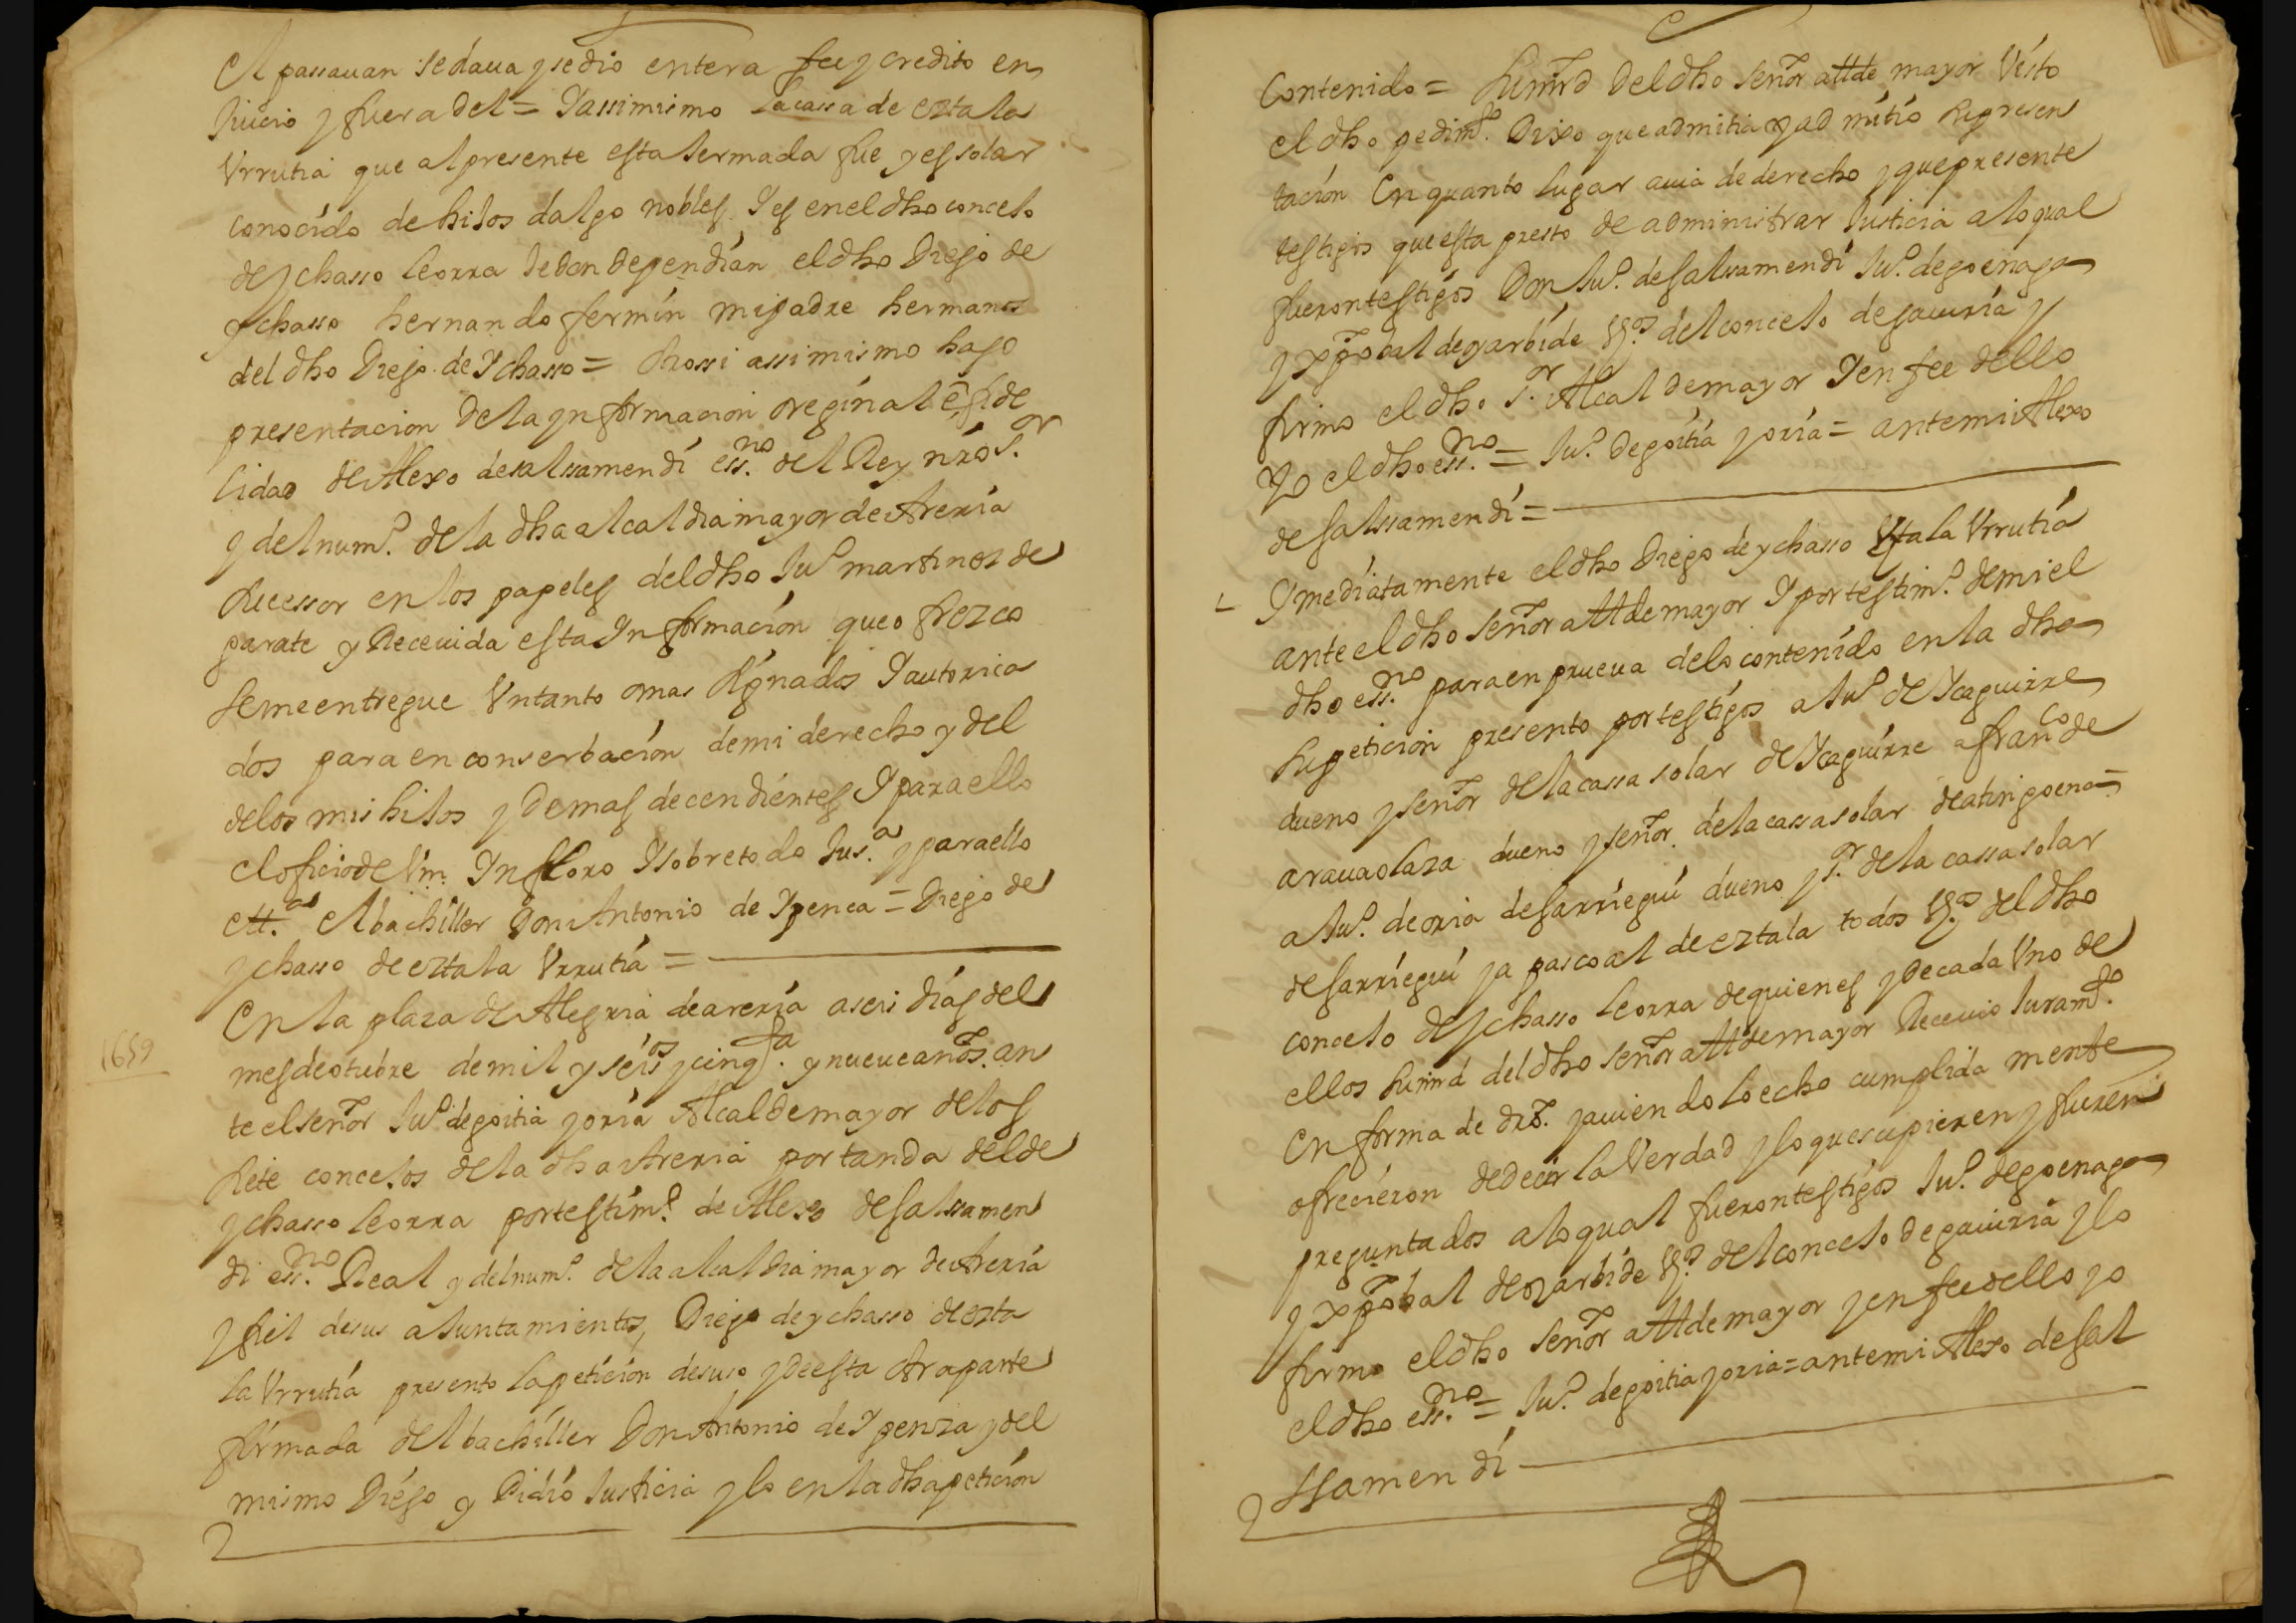 El passauan sedaua y sedio entera fee y credito en
Juicio y fuera del = Y assimismo la cassa de eztala
Vrrutia que al presente esta Iermada fue y es solar
conocido de hiJos dalgo nobles. Y es en el dho conceJo
de ychasso Leorra de don dependian el dho Diego de
ychasso hernando fermin mi padre hermanos
del dho Diego de Ychasso = Otrossi assimismo hago
presentacion de la ynformacion oreginal e, fide
lidad de Alexo desalssamendi ess.no del Rey nro S.or
y del num.o de la dha alcaldia mayor de Areria
sucessor en los papeles del dho Ju.o martinez de
parate y Receuida esta Informacion que ofrezco
Se me entregue Vn tanto o mas signados Y autoriça
dos para en conserbacion de mi derecho y del
de los mis hiJos y demas decendientes Y para ello
el oficio de Vm. Ynploro Y sobre todo Jus.a y para ello
ett.a El bachiller Don Antonio de Ypenca = Diego de
ychasso de eztala Vrrutia =
En la plaza de Alegria de areria a seis dias del
1659
mes de otubre de mil y seis.os y cinq.ta y nueue años. an
te el señor Ju.o de goitia y oria Alcalde mayor de los
siete conceJos de la dha Areria por tanda del de
ychasso Leorra por testim.o de Alexo de salssamen
di ess.no Real y del num.o de la alcaldia mayor de Areria
y fiel de sus aJuntamientos, Diego de ychasso de ezta
la Vrrutia presento la peticion de suso y de esta otra parte
firmada del bachiller Don Antonio de Ypenza y del
mismo Diego y Pidio Justicia y lo en la dha peticion
Contenido = su mrd Del dho señor allde mayor Visto
el dho pedim.to Dixo que admitia y admitio su presen
tacion En quanto lugar auia de derecho y que presente
testigos que esta presto de administrar Justicia a lo qual
fueron testigos Don Ju.o de salssamendi Ju.o de goenaga
y xpobal de garbide Vs.os del conceJo de gauiria y
firmo el dho S.or Alcalde mayor Y en fee dello
Yo el dho ess.no = Ju.o de goitia y oria = ante mi Alexo
de salssamendi =
Ymediatamente el dho Diego de ychasso Eztala Vrrutia
ante el dho señor allde mayor Y por testim.o de mi el
dho ess.no para en prueua de lo contenido en la dha
su peticion presento por testigos a Ju.o de Ycaguirre
dueno y señor de la cassa solar de Ycaguirre a fran.co de
arauaolaza dueno y señor de la cassa solar de atin goena =
a Ju.o de oria de sarriegui dueno y S.or de la cassa solar
de sarriegui y a pascoal de eztala todos Vs.os del dho
conceJo de ychasso Leorra de quienes y de cada Vno de
ellos su mrd del dho señor allde mayor Receuio Juram.to
En forma de dro. y auiendolo echo cumplida mente
ofrecieron de decir la Verdad y lo que supieren y fueren
preguntados a lo qual fueron testigos Ju.o de goenaga
y xpobal de garbide Vs.os del conceJo de gauiria y lo
firmo el dho señor allde mayor y en fee dello yo
el dho ess.no = Ju.o de goitia y oria = ante mi Alexo de sal
ssamendi